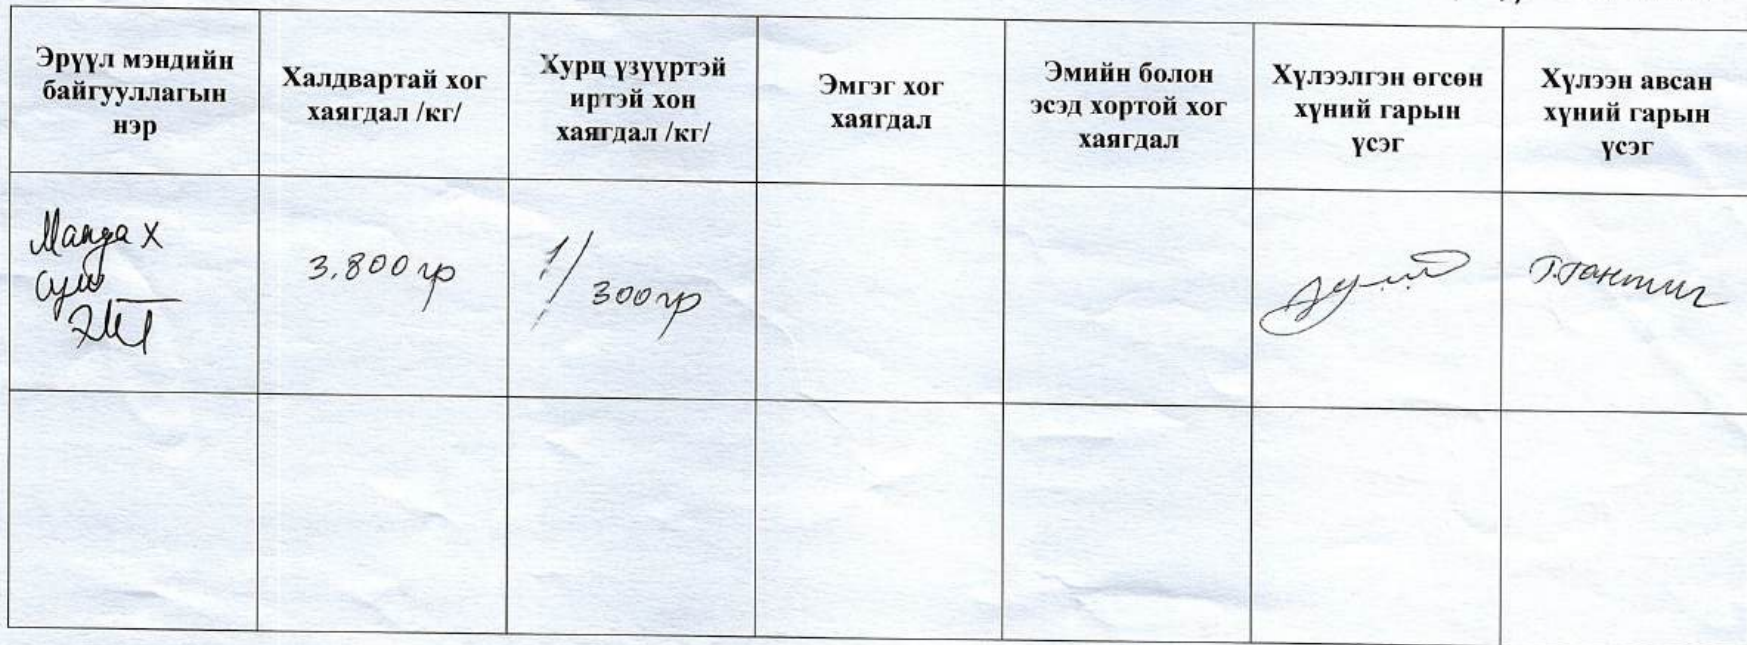 Эрүүл мэндийн
байгууллагын
нэр
Халдвартай хог
хаягдал /кг/
Хурц үзүүртэй
иртэй хон
хаягдал /кг/
Эмгэг хог
хаягдал
Эмийн болон
эсэд хортой хог
хаягдал
Хүлээлгэн өгсөн
хүний гарын
үсэг
Хүлээн авсан
хүний гарын
үсэг
Мандах
сум
ЭМТ
3,800 гр
1/
300 гр